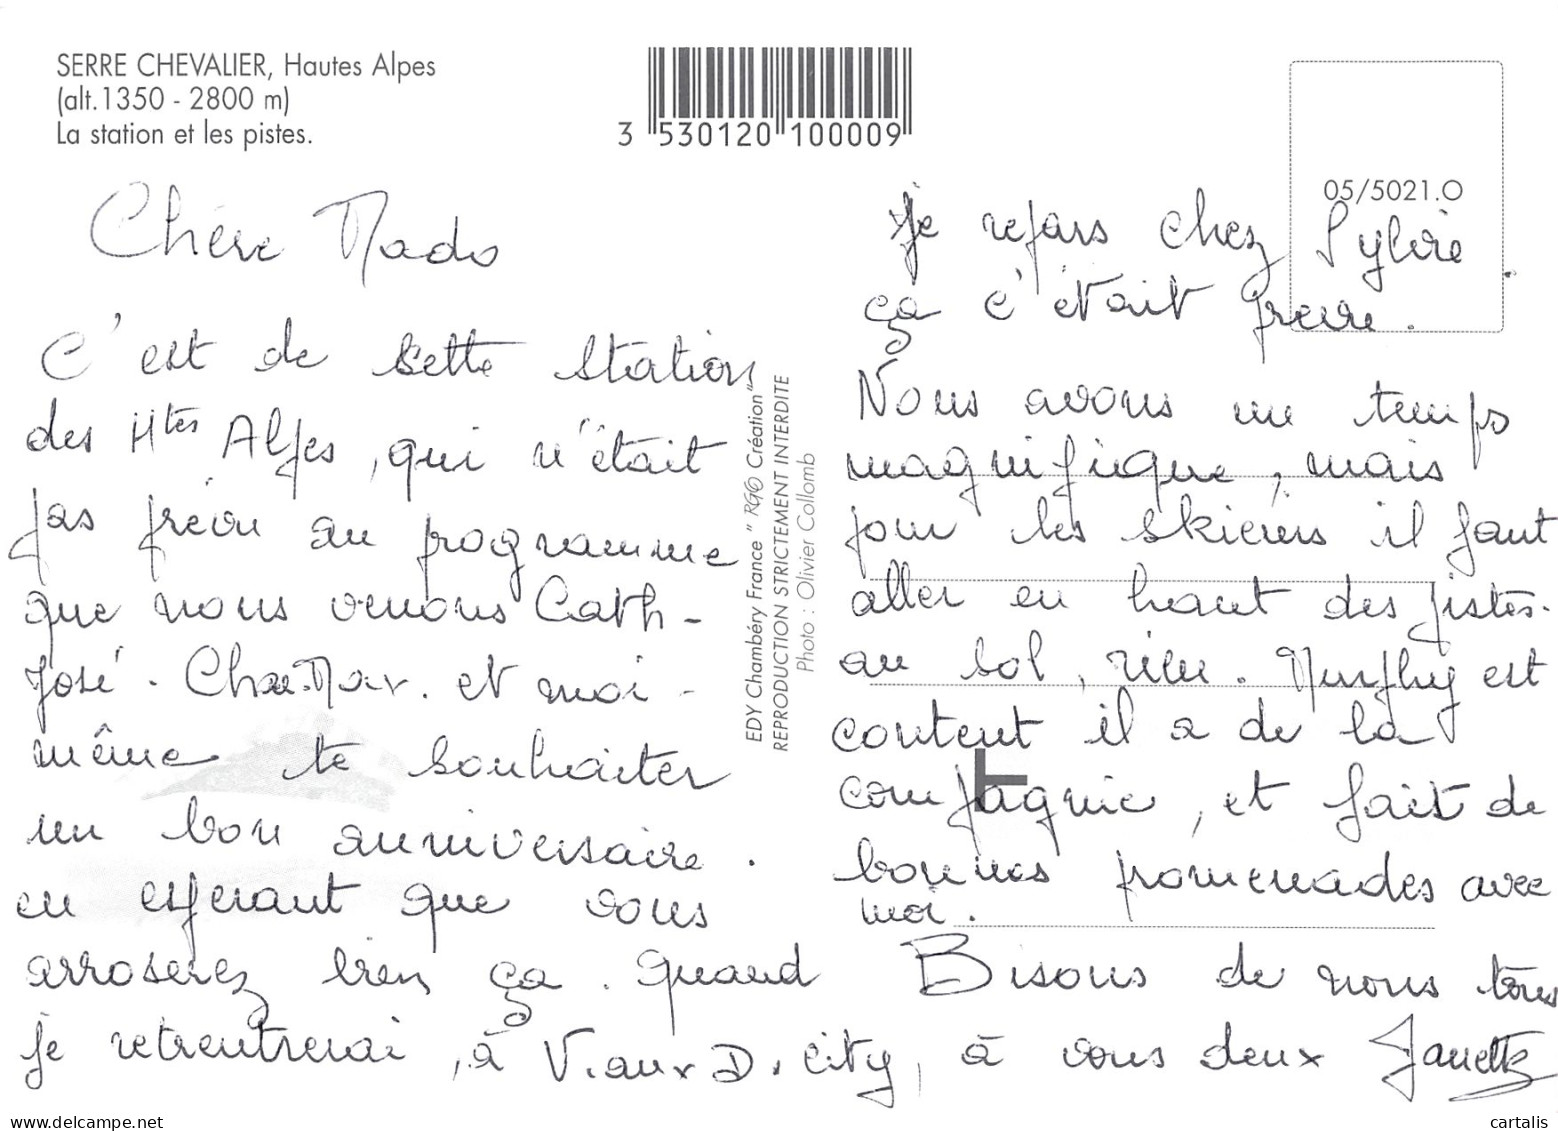 SERRE CHEVALIER, Hautes Alpes
(alt.1350 - 2800 m)
La station et les pistes.
3 530120 100009
05/5021.O
Chère Nado
C'est de sette station
des Htes Alpes, qui n'était
pas prévu au programme
que nous venons Cath-
José. Cha.Mar. et moi-
même te souhaiter
un bon anniversaire.
en esperant que vous
arroserez bien ça. quand
je retrentrerai, à V.aux D. city,
EDY Chambéry France " RGO Création"
REPRODUCTION STRICTEMENT INTERDITE
Photo : Olivier Collomb
je repars chez Sylvie.
ça c'était prévu.
Nous avons un temps
magnifique, mais
pour les skieurs il faut
aller en haut des pistes.
au sol, rien. Murphy est
content il a de la
compagnie, et fait de
bonnes promenades avec
moi.
Bisous de nous tous
à vous deux Janette
cartalis